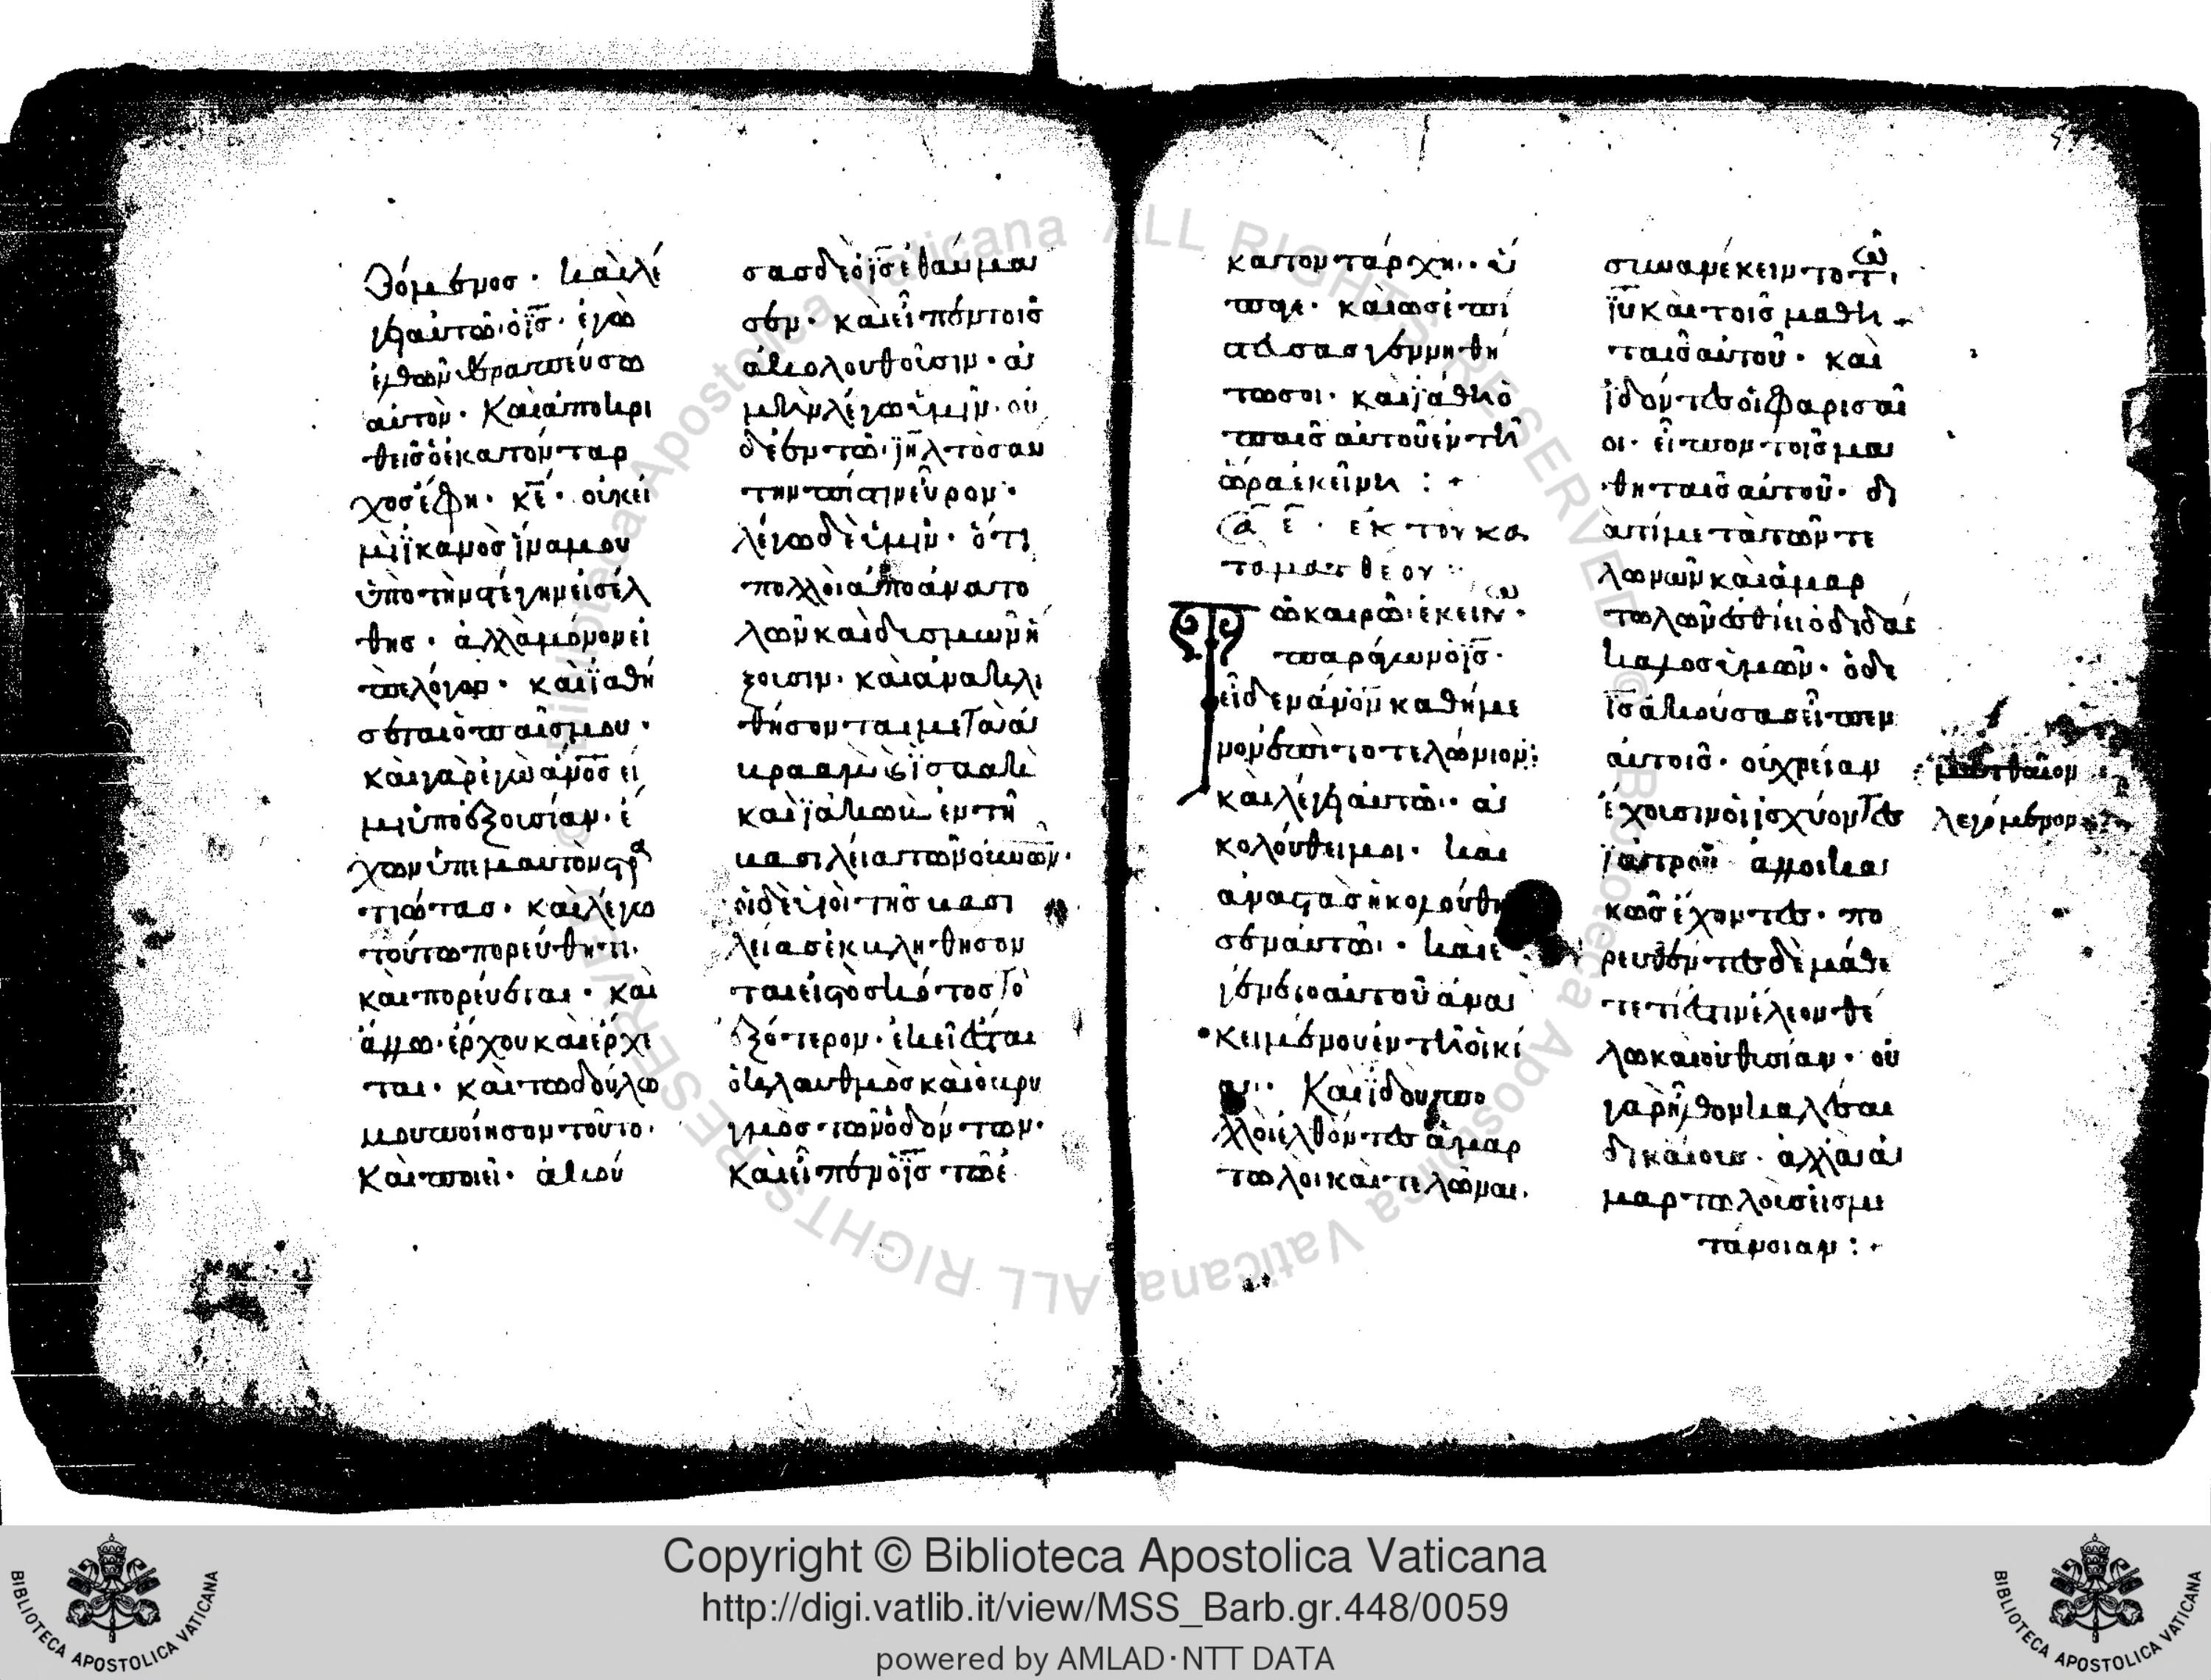 νόμενος· καὶ λέ
γει αὐτῶ ὁ ις̄· ἐγὼ
ἐλθὼν θεραπεύσω
αὐτόν· Καὶ ἀποκρι
θεὶς ὁ ἑκατόνταρ
χος ἔφη· κε̄· οὐκ εἰ
μὶ ϊκανὸς ϊνα μου
ὑπὸ τὴν στέγην εἰσέλ
θης· ἀλλὰ μόνον εἰ
πὲ λόγον· καὶ ϊαθή
σεται ὁ παῖς μου·
καὶ γὰρ ἐγὼ ἄν̄ος εἰ
μι ὑπὸ ἐξουσίαν· ἔ
χων ὑπ' ἐμαυτὸν στρα
τιώτας· καὶ λέγω
τούτω πορεύθητι·
καὶ πορεύεται· καὶ
ἄλλω· ἔρχου καὶ ἔρχε
ται· καὶ τῶ δούλω
μου ποίησον τοῦτο·
Καὶ ποιεῖ· ἀκού
σας δὲ ὁ ις̄ ἐθαύμα
σεν· καὶ εἶπεν τοῖς
ἀκολουθοῦσιν· ἀ
μὴν λέγω ὑμῖν· οὐ
δὲ ἐν τῶ ιη̄λ τοσαύ
την πίστιν εὗρον·
λέγω δὲ ὑμῖν· ὅτι
πολλοὶ ἀπὸ ἀνατο
λῶν καὶ δυσμῶν ἥ
ξουσιν· καὶ ἀνακλι
θήσονται μετὰ ἀ
βραὰμ καὶ ϊσαὰκ
καὶ ϊακὼβ ἐν τῆ
βασιλεία τῶν οὐνῶν·
οἱ δὲ υἱοὶ τῆς βασι
λείας ἐκβληθήσον
ται εἰς τὸ σκότος τὸ
ἐξώτερον· ἐκεῖ ἔσται
ὁ κλαυθμὸς καὶ ὁ βρυ
γμὸς τῶν ὀδόντων·
Καὶ εἶπεν ὁ ις̄ τῶ ἑ
κατοντάρχη· ὕ
παγε· καὶ ὡς ἐπί
στευσας γεννηθή
τω σοι· καὶ ϊάθη ὁ
παῖς αὐτοῦ ἐν τῆ
ὥρα ἐκείνη :+
Σα ε̄· ἐκ τοῦ κα
τα ματθεον
Τῶ καιρῶ ἐκείνω·
παράγων ὁ ις̄·
εἶδεν ἄνο̄ν καθήμε
νον ἐπὶ το τελώνιον·
καὶ λέγει αὐτῶ· ἀ
κολούθει μοι· καὶ
ἀναστὰς ἠκολούθη
σεν αὐτῶ· καὶ ἐ
γένετο αὐτοῦ ἀνα
κειμένου ἐν τῆ οἰκί
α· Καὶ ϊδοὺ πο
λλοὶ ἐλθόντες ἁμαρ
τωλοι καὶ τελῶναι·
συνανέκειντο τῶ
ιῡ καὶ τοῖς μαθη
ταῖς αὐτοῦ· καὶ
ϊδόντες οἱ φαρισαῖ
οι· εἶπον τοῖς μα
θηταῖς αὐτοῦ· δι
ὰ τί μετὰ τῶν τε
λωνῶν καὶ ἁμαρ
τωλῶν ἐσθίει ὁ διδάς
καλος ὑμῶν· ὁ δὲ
ις̄ ἀκούσας εἶπεν
αὐτοῖς· οὐ χρείαν
ἔχουσιν οἱ ϊσχύοντες
ϊατροῦ ἀλλ' οἱ κα
κῶς ἔχοντες· πο
ρευθέντες δὲ μάθε
τε τί ἐστιν ἔλεον θέ
λω καὶ οὐ θυσίαν· οὐ
γὰρ ἦλθον καλέσαι
δικαίους· ἀλλὰ ἁ
μαρτωλοὺς εἰς με
τάνοιαν :+
ματθαῖον
λεγόμενον
Copyright © Biblioteca Apostolica Vaticana
http://digi.vatlib.it/view/MSS_Barb.gr.448/0059
powered by AMLAD·NTT DATA
BIBLIOTECA APOSTOLICA VATICANA
BIBLIOTECA APOSTOLICA VATICANA